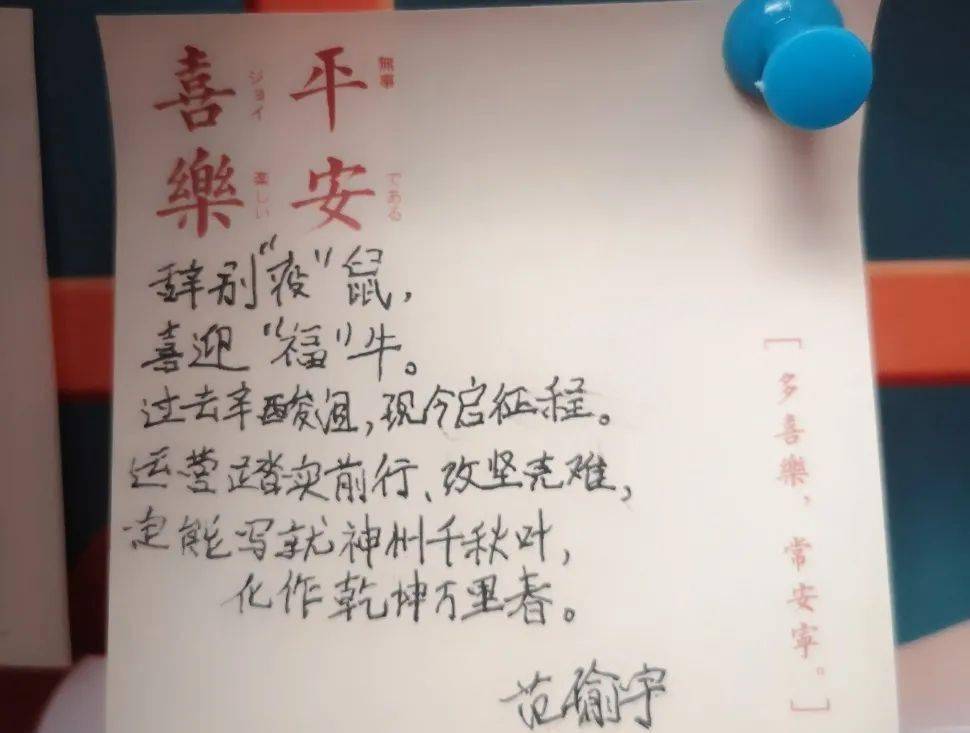 平安
無事
である
喜樂
ジョイ
楽しい
辞别“疫”鼠，
喜迎“福”牛。
过去辛酸泪，现今启征程。
运营踏实前行、改坚克难，
定能写就神州千秋叶，
化作乾坤万里春。
范瑜宇
[多喜樂，常安寧。]